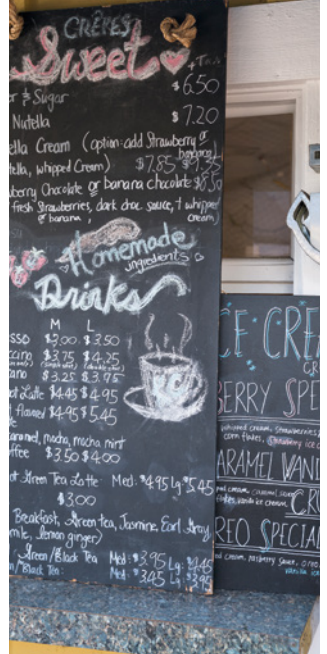 CRÊPES
Sweet
+Tax
& Sugar $6.50
Nutella $7.20
ella Cream (option: add Strawberry or banana)
tella, whipped Cream) $7.85
berry Chocolate or banana chocolate $8.50
fresh Strawberries, dark choc sauce, + whipped cream)
or banana,
Homemade
ingredients
Drinks
M L
SSO $3.00 $3.50
ccino $3.75 $4.25
ano $3.25 $3.95
ot Latte $4.45 $4.95
flavored $4.95 $5.45
aramel, mocha, mocha mint
ffee $3.50 $4.00
ot Green Tea Latte: Med: $4.95 Lg: $5.45
$3.00
Breakfast, Green tea, Jasmine, Earl Gray,
mile, Lemon ginger)
Green/Black Tea Med: $3.95 Lg: $4.45
n/Black Tea: Med: $3.45 Lg: $3.95
CE CREA
BERRY SPE
whipped cream, Strawberries,
corn flakes, Strawberry ice c
ARAMEL VANI
REO SPECIAL
ed cream, raspberry sauce, oreo
vanilla ice